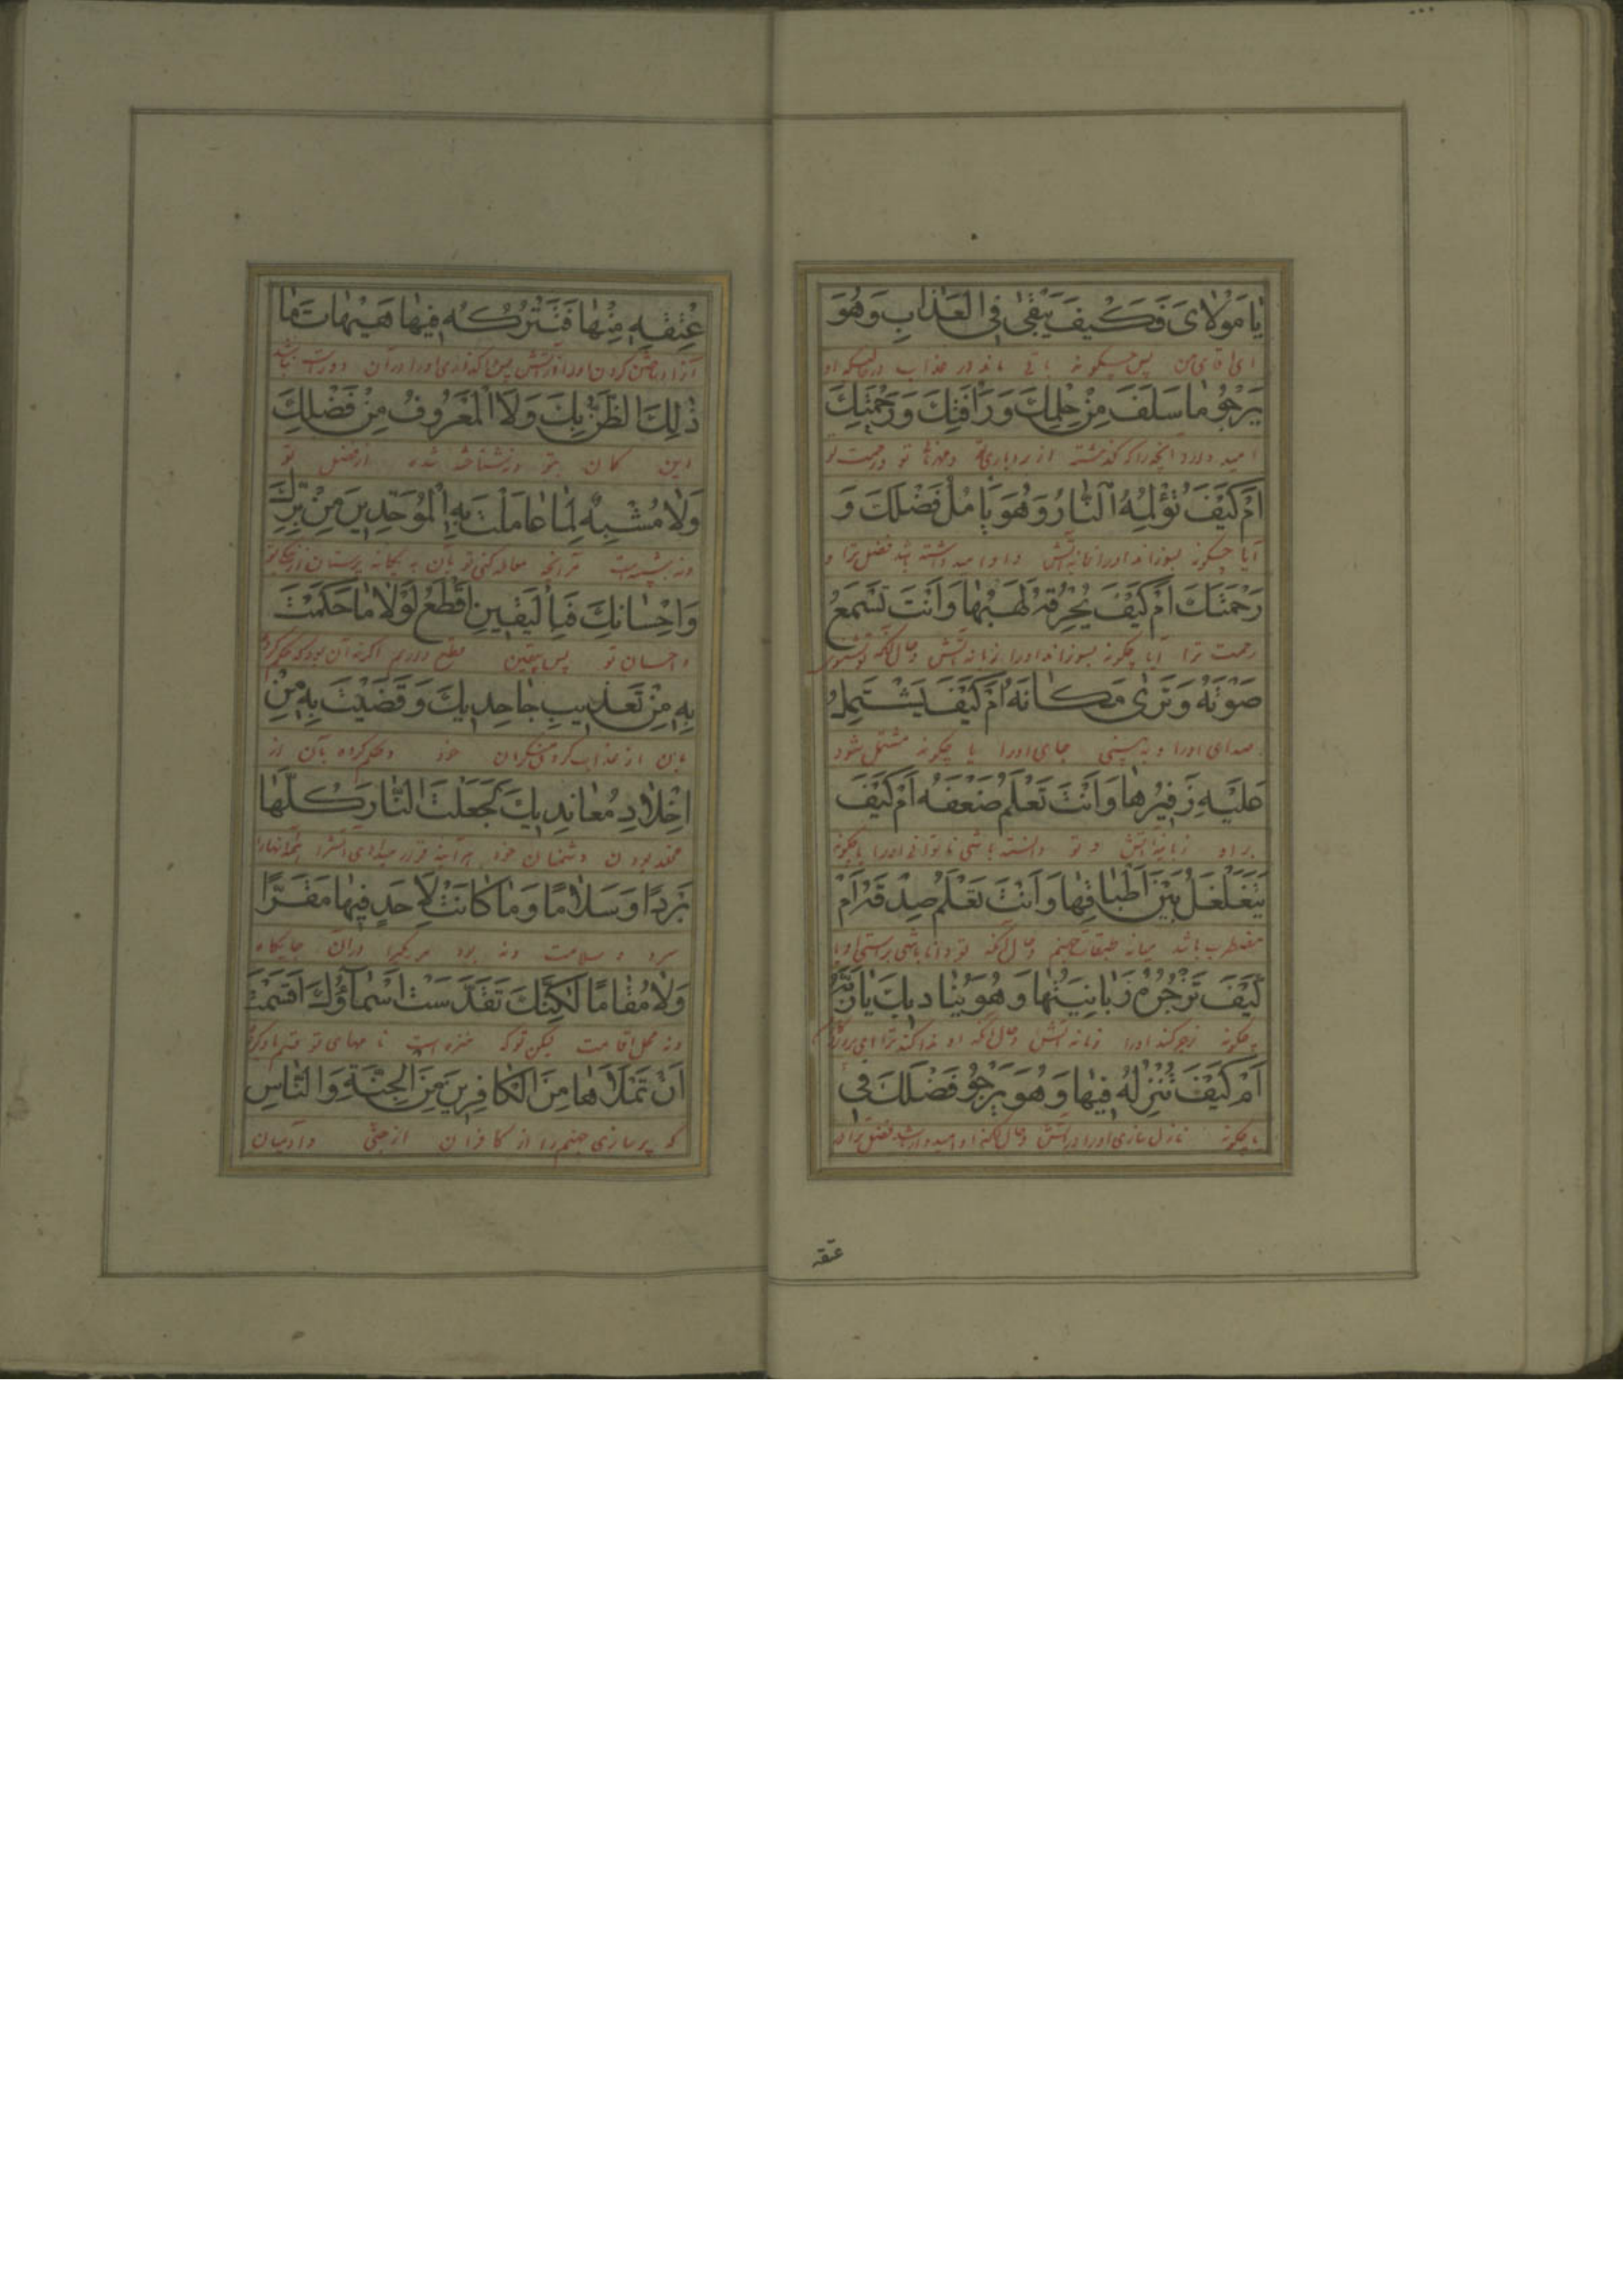 يٰا مَوْلاٰىَ فَكَيْفَ يَبْقىٰ فِى الْعَذٰابِ وَهُوَ
اى اقاى من پس چگونه باقى ماند در عذاب در حاليكه او
يَرْجُوُ مٰا سَلَفَ مِنْ حِلْمِكَ وَرَاْفَتِكَ وَرَحْمَتِكَ
اميد دارد آنچه را كه گذشته از بردبارى و مهربانى تو و رحمت تو
اَمْ كَيْفَ تُؤْلِمُهُ النّٰارُ وَهُوَ يَاْمُلُ فَضْلَكَ وَ
آيا چگونه بسوزاند او را آتش و او اميد داشته باشد فضل ترا و
رَحْمَتَكَ اَمْ كَيْفَ يُحْرِقُهُ لَهَبُهٰا وَاَنْتَ تَسْمَعُ
رحمت ترا آيا چگونه بسوزاند او را زبانه آتش و حال آنكه تو بشنوى
صَوْتَهُ وَتَرىٰ مَكٰانَهُ اَمْ كَيْفَ يَشْتَمِلُ
صداى او را و به بينى جاى او را يا چگونه مشتمل شود
عَلَيْهِ زَفيرُهٰا وَاَنْتَ تَعْلَمُ ضَعْفَهُ اَمْ كَيْفَ
بر او زبانه آتش و تو دانسته باشى ناتوانى او را يا چگونه
يَتَغَلْغَلُ بَيْنَ اَطْبٰاقِهٰا وَاَنْتَ تَعْلَمُ صِدْقَهُ اَمْ
مضطرب باشد ميانه طبقات جهنم و حال آنكه تو دانا باشى براستى او يا
كَيْفَ تَزْجُرُهُ زَبٰانِيَتُهٰا وَهُوَ يُنٰاديكَ يٰا رَبَّهُ
چگونه زجر كند او را زبانه آتش و حال آنكه او ندا كند ترا اى پروردگار
اَمْ كَيْفَ تُنْزِلُهُ فيهٰا وَهُوَ يَرْجُوُ فَضْلَكَ فى
يا چگونه نازل سازى او را در آتش و حال آنكه او اميدوار باشد فضل ترا در
عتقه
عِتْقِهِ مِنْهٰا فَتَتْرُكُهُ فيهٰا هَيْهٰاتَ مٰا
آزاد ساختن كردن او را از آتش پس وا گذارى او را در آن دور است نباشد
ذٰلِكَ الظَّنُّ بِكَ وَلاَ الْمَعْرُوفُ مِنْ فَضْلِكَ
اين گمان بتو و نه شناخته شده از فضل تو
وَلاٰ مُشْبِهٌ لِمٰا عٰامَلْتَ بِهِ الْمُوَحِّدينَ مِنْ بِرِّكَ
و نه شبيه است مر آنچه معامله كنى تو بآن به يگانه پرستان از نيكى تو
وَاِحْسٰانِكَ فَبِالْيَقينِ اَقْطَعُ لَوْلاٰ مٰا حَكَمْتَ
و احسان تو پس بيقين قطع دارم اگر نه آن بود كه حكم كرده
بِهِ مِنْ تَعْذيبِ جٰاحِديكَ وَقَضَيْتَ بِهِ مِنْ
باين از عذاب كردن منكران خود و حكم كرده بآن از
اِخْلاٰدِ مُعٰانِديكَ لَجَعَلْتَ النّٰارَ كُلَّهٰا
مخلد بودن دشمنان خود هر آينه قرار ميدادى آتش را همه آنها را
بَرْدًا وَسَلاٰمًا وَمٰا كٰانَتْ لِاَحَدٍ فيهٰا مَقَرًّا
سرد و سلامت و نه بود هر يكيرا در آن جايگاه
وَلاٰ مُقٰامًا لٰكِنَّكَ تَقَدَّسَتْ اَسْمٰاۤؤُكَ اَقْسَمْتَ
و نه محل اقامت ليكن تو كه منزه است نامهاى تو قسم ياد كرده
اَنْ تَمْلَاَهٰا مِنَ الْكٰافِرينَ مِنَ الْجِنَّةِ وَالنّٰاسِ
كه پر سازى جهنم را از كافران از جنّى و آدميان